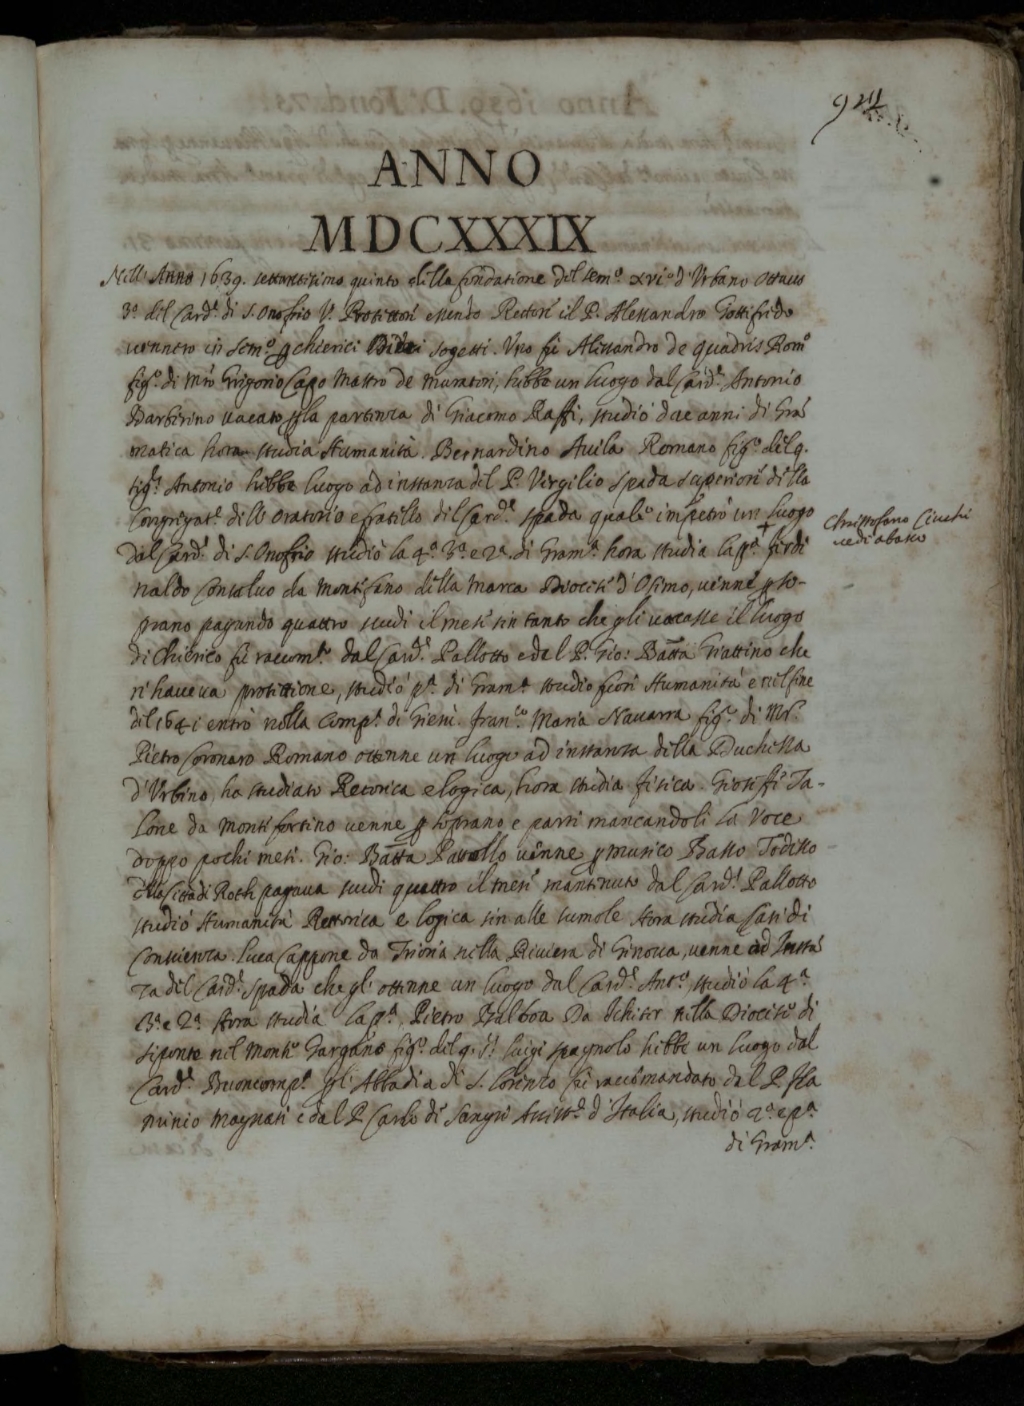 ANNO
MDCXXXIX
Nell'Anno 1639. settantesimo quinto della fondatione del Sem.º xvi.º d'Urbano Ottavo
3.º del Card.l di S. Onofrio V. Protettori essendo Rettori il P. Alessandro Gottifredo
vennero in Sem.º p chierici Dieci sogetti. Uno fù Alissandro de quadris Rom.º
fig.º di Mro Grigorio Capo Mastro de Muratori, hebbe un luogo dal Card.l Antonio
Barberino vacato p la partenza di Giacomo Raffi, studiò due anni di Gra
matica hora studia Humanità. Bernardino Avila Romano fig.º del q.
Sig.r Antonio hebbe luogo ad instanza del P. Virgilio Spada Superiori della
Congregat.e dell'Oratorio e fratello del Card.l Spada quale impetrò un luogo
Christofano Ciuchi
vedi abasso
dal Card.l di S. Onofrio studiò la 4.ª 3.ª e 2.ª di Gram.ª hora studia la p.ª + Ferdi
naldo Consaluo da Montefano della Marca Diocesi d'Osimo, venne p so-
prano pagando quattro scudi il mese sin tanto che gli vacasse il luogo
di Chierico fù racom.to dal Card.l Pallotto e dal P. Gio: Batta Giattino che
n'haveva protettione, studiò p.ª di Gram.ª studio fuori Humanità e nel fine
del 1641 entrò nella Comp.ª di Giesù. Fran.co Maria Navarra fig.º di Mr.
Pietro Coronaro Romano ottenne un luogo ad instanza della Duchessa
d'Urbino, ha studiato Retorica e logica, hora studia fisica. Gioseffi Ta-
lone da Montefortino venne p soprano e parti mancandoli la Voce
doppo pochi mesi. Gio: Batta Pattollo venne p musico Basso Todesco
della Città di pagava scudi quattro il mese mantenuto dal Card.l Pallotto
studiò Humanità Rettorica e logica sin alle sumole hora studia Casi di
Conscienza. Luca Cappone da Trioria nella Riviera di Genova, venne ad Insta
za del Card.l Spada che gli ottenne un luogo dal Card.l Ant.º, studiò la 4.ª
3.ª e 2.ª Hora studia la p.ª. Pietro Balboa Da Ischiter nella Diocese di
Siponte nel Monte Gargano fig.º del q. S.r Luigi spagnolo hebbe un luogo dal
Card.l Buoncomp.º p l'Abbadia di S. Lorenzo fù raccomandato dal P. Fla
minio Magnati e dal P. Carlo di Sangri Assist.e d'Italia, studiò 2.ª e p.ª
di Gram.ª